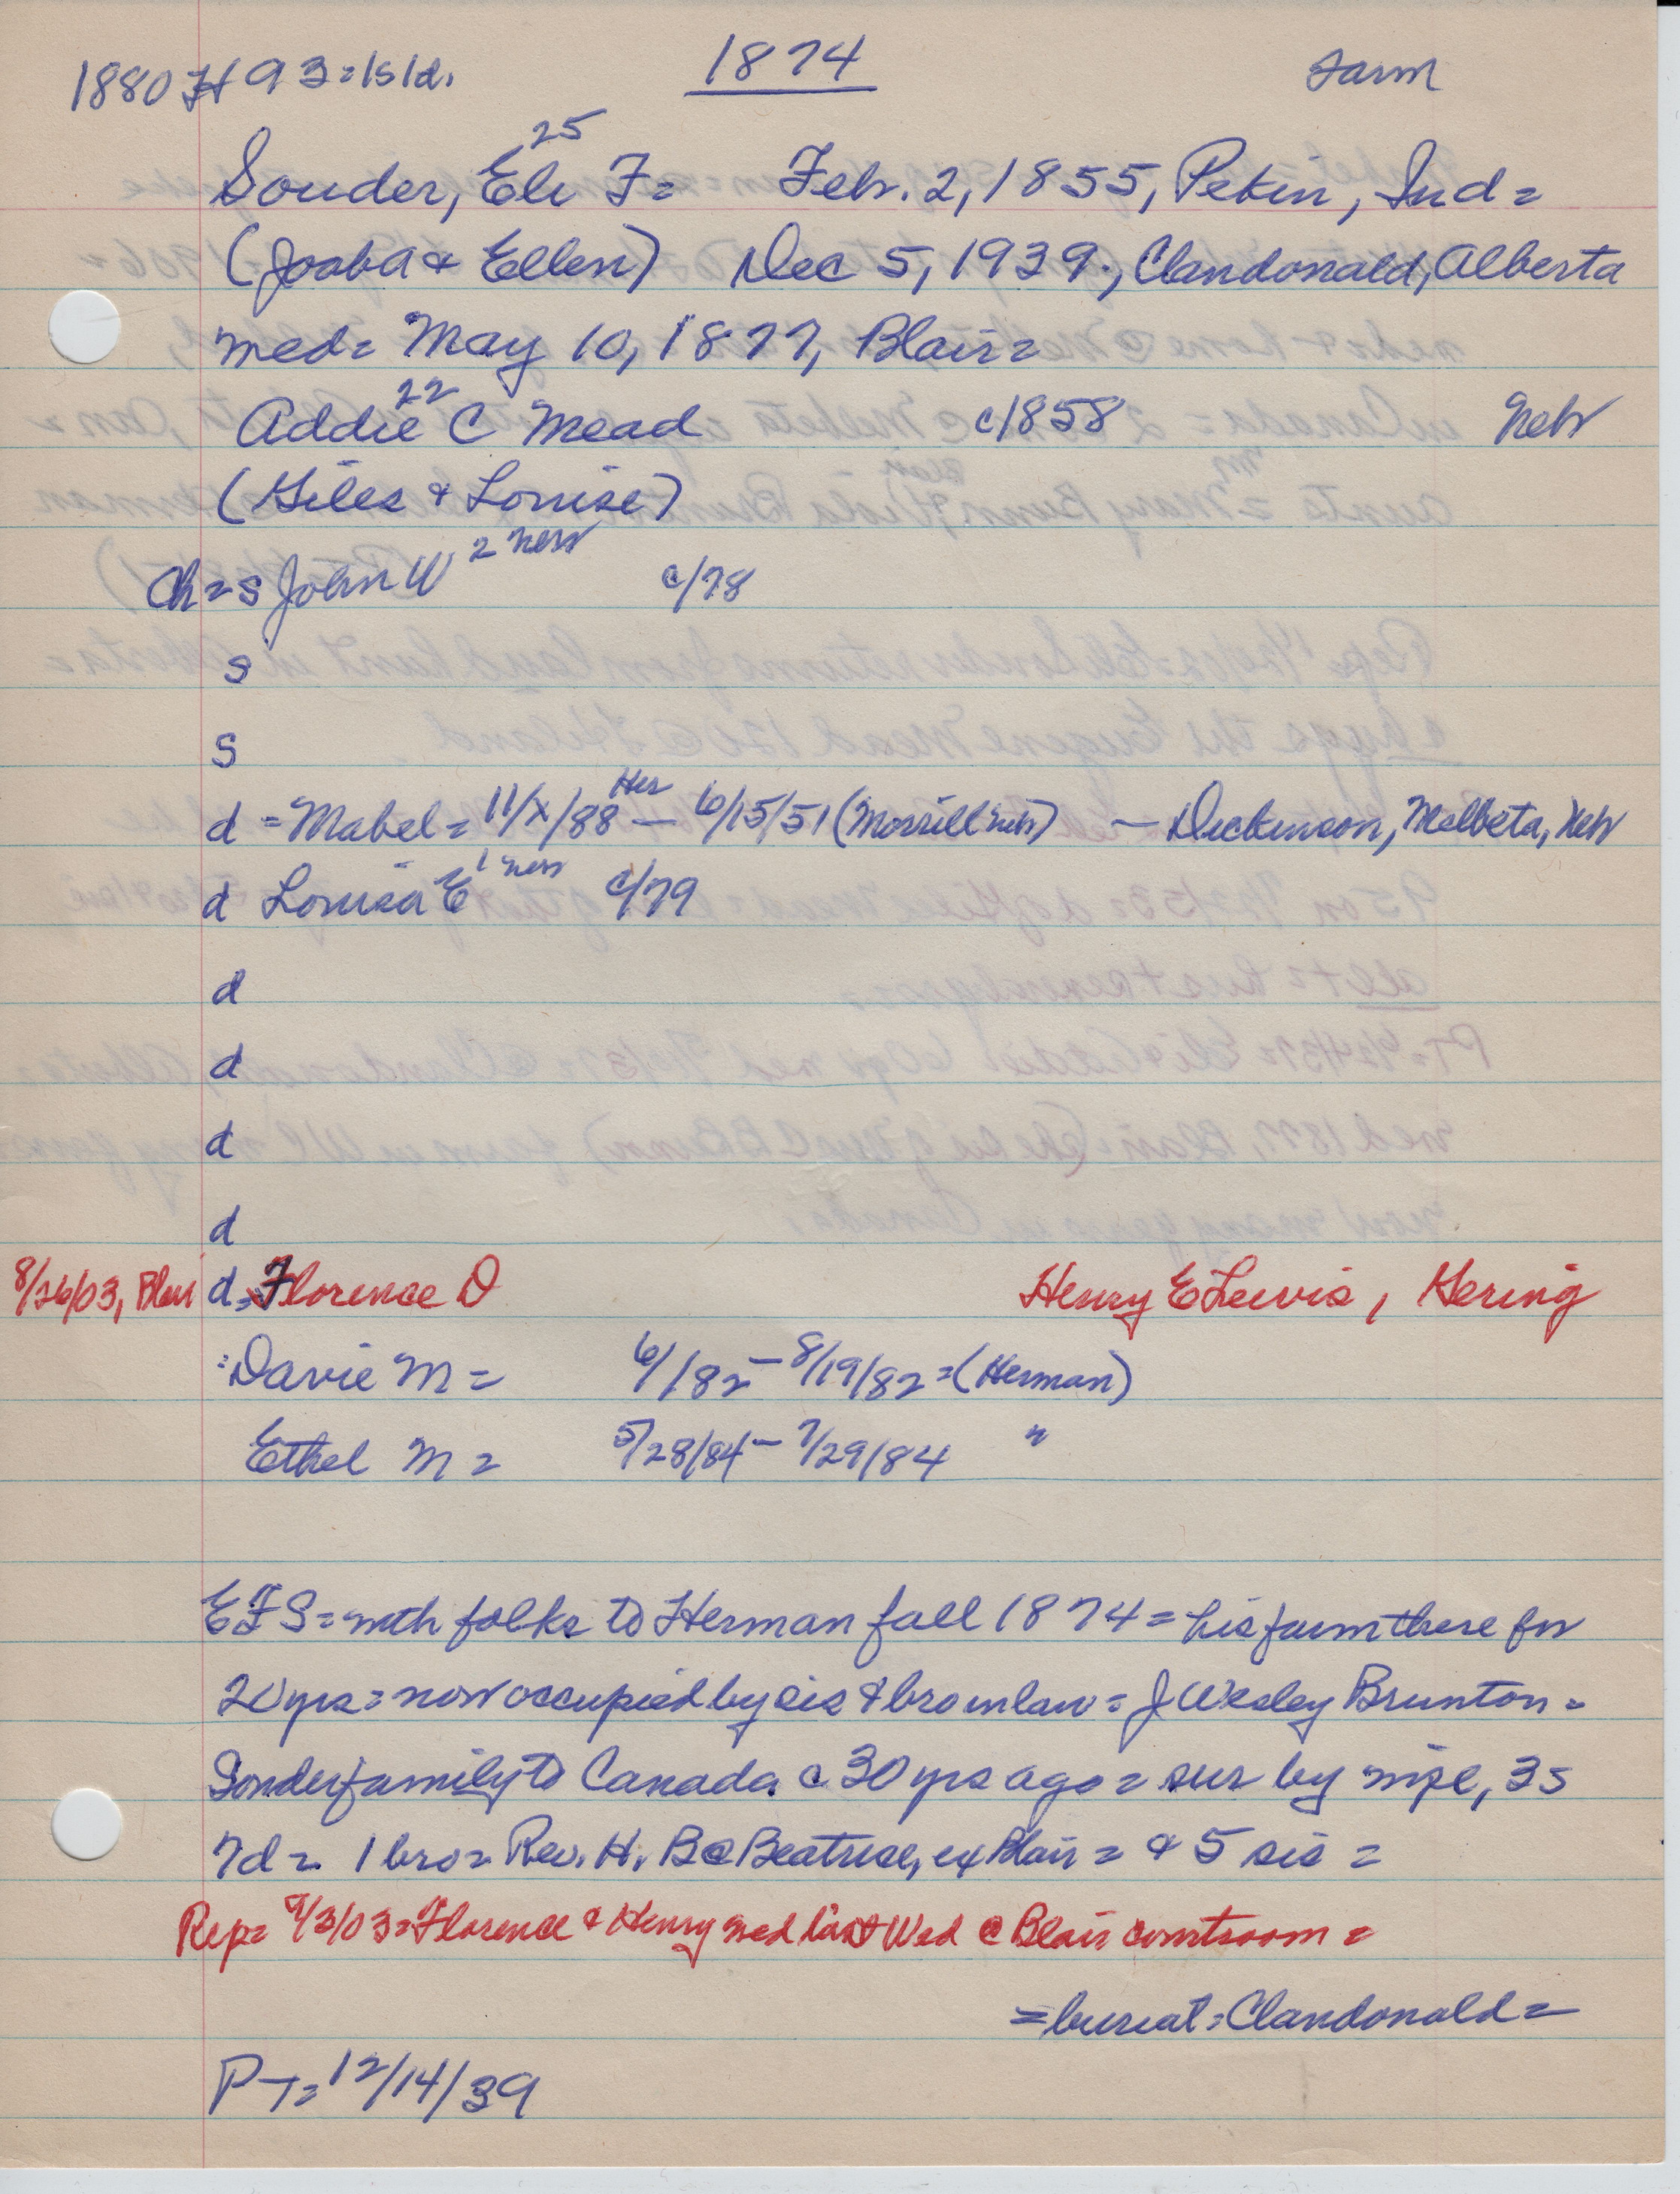 1880 H 93=1s 1d.
1874
Farm
25
Souder, Eli F= Feb. 2, 1855, Pekin, Ind=
(Joaba & Ellen) Dec 5, 1939., Clandonald, Alberta
med= May 10, 1877, Blair=
22
Addie C Mead c/1858 Neb
(Giles & Louise)
Ch= s John W 2 Neb c/78
s
s
d =Mabel= 11/x/88 Her — 6/15/51 (Morrill Neb) — Dickinson, Melbeta, Neb
d Louisa E 1 Neb c/79
d
d
d
d
8/26/03, Blair d= Florence D Henry E Lewis, Gering
=Davie M= 6/1/82 – 8/19/82=(Herman)
Ethel M= 5/28/84 – 7/29/84 "
EFS= with folks to Herman fall 1874= his farm there for
20 yrs= now occupied by sis & bro in law= J Wesley Brunton=
Souder family to Canada c 30 yrs ago= sur by wife, 3s
7d= 1 bro= Rev. H. B @ Beatrice, ex Blair= & 5 sis=
Rep= 9/3/03= Florence & Henry med last Wed @ Blair courtroom=
=burial: Clandonald=
PT= 12/14/39